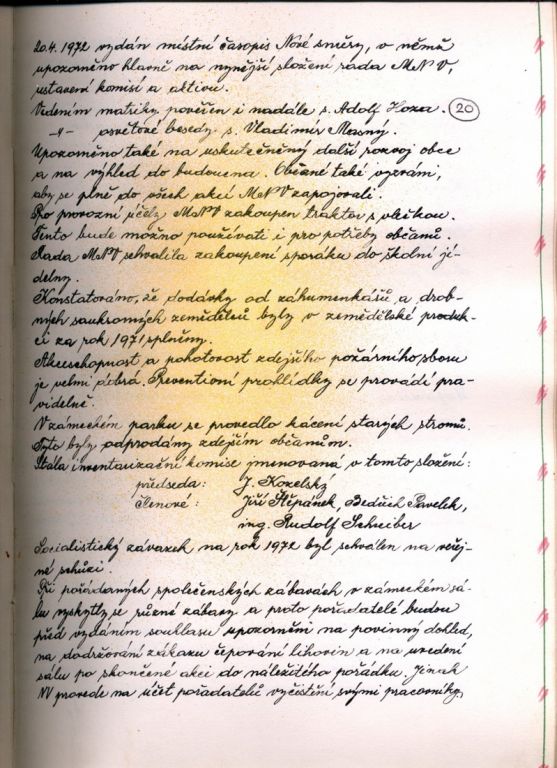 20.4.1972 vydán místní časopis Nové směry, v němž
upozorněno hlavně na nynější složení rada MNV,
ustavení komisí a aktivu.
Vedením matriky pověřen i nadále s. Adolf Hoza. 20
-"- osvětové besedy s. Vladimír Masný.
Upozorněno také na uskutečněný další rozvoj obce
a na výhled do budoucna. Občané také vyzváni,
aby se plně do všech akcí MNV zapojovali.
Pro provozní účely MNV zakoupen traktor s vlečkou.
Tento bude možno používati i pro potřeby občanů.
Rada MNV schválila zakoupení sporáku do školní jí-
delny.
Konstatováno, že dodávky od záhumenkářů a drob-
ných soukromých zemědělců byly v zemědělské produk-
ci za rok 1971 splněny.
Akceschopnost a pohotovost zdejšího požárního sboru
je velmi dobrá. Preventivní prohlídky se provádí pra-
videlně.
V zámeckém parku se provedlo kácení starých stromů.
Tyto byly odprodány zdejším občanům.
Stálá inventarizační komise jmenovaná v tomto složení:
předseda: J. Kozelský
členové: Jiří Štěpánek, Bedřich Pavelek,
ing. Rudolf Schreiber
Socialistický závazek na rok 1972 byl schválen na veřej-
né schůzi.
Při pořádaných společenských zábavách v zámeckém sá-
lu vyskytly se různé závady a proto pořadatelé budou
před vydáním souhlasu upozorněni na povinný dohled,
na dodržování zákazu čepování lihovin a na uvedení
sálu po skončené akci do náležitého pořádku. Jinak
NV provede na účet pořadatelů vyčistění svými pracovníky.